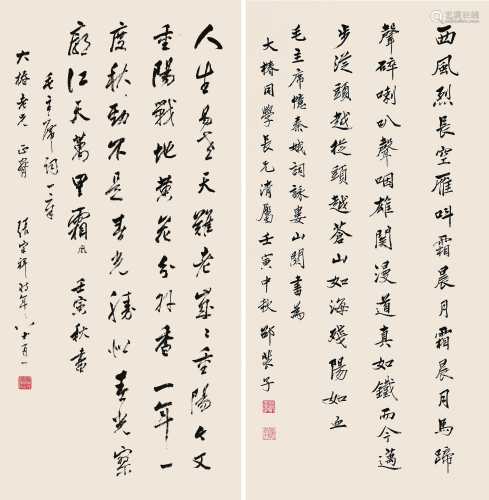 西風烈長空雁叫霜晨月霜晨月馬蹄
聲碎喇叭聲咽雄関漫道真如鐵而今邁
步從頭越從頭越蒼山如海殘陽如血
毛主席憶秦娥詞詠婁山関書為
大椿同學長兄清屬壬寅中秋邵裴子
人生易老天難老歲〻重陽今又
重陽戰地黃花分外香一年一
度秋勁不是春光勝似春光寥
廓江天萬里霜風 壬寅秋書
毛主席詞一首
大椿老兄正 張宗祥時年八十有一